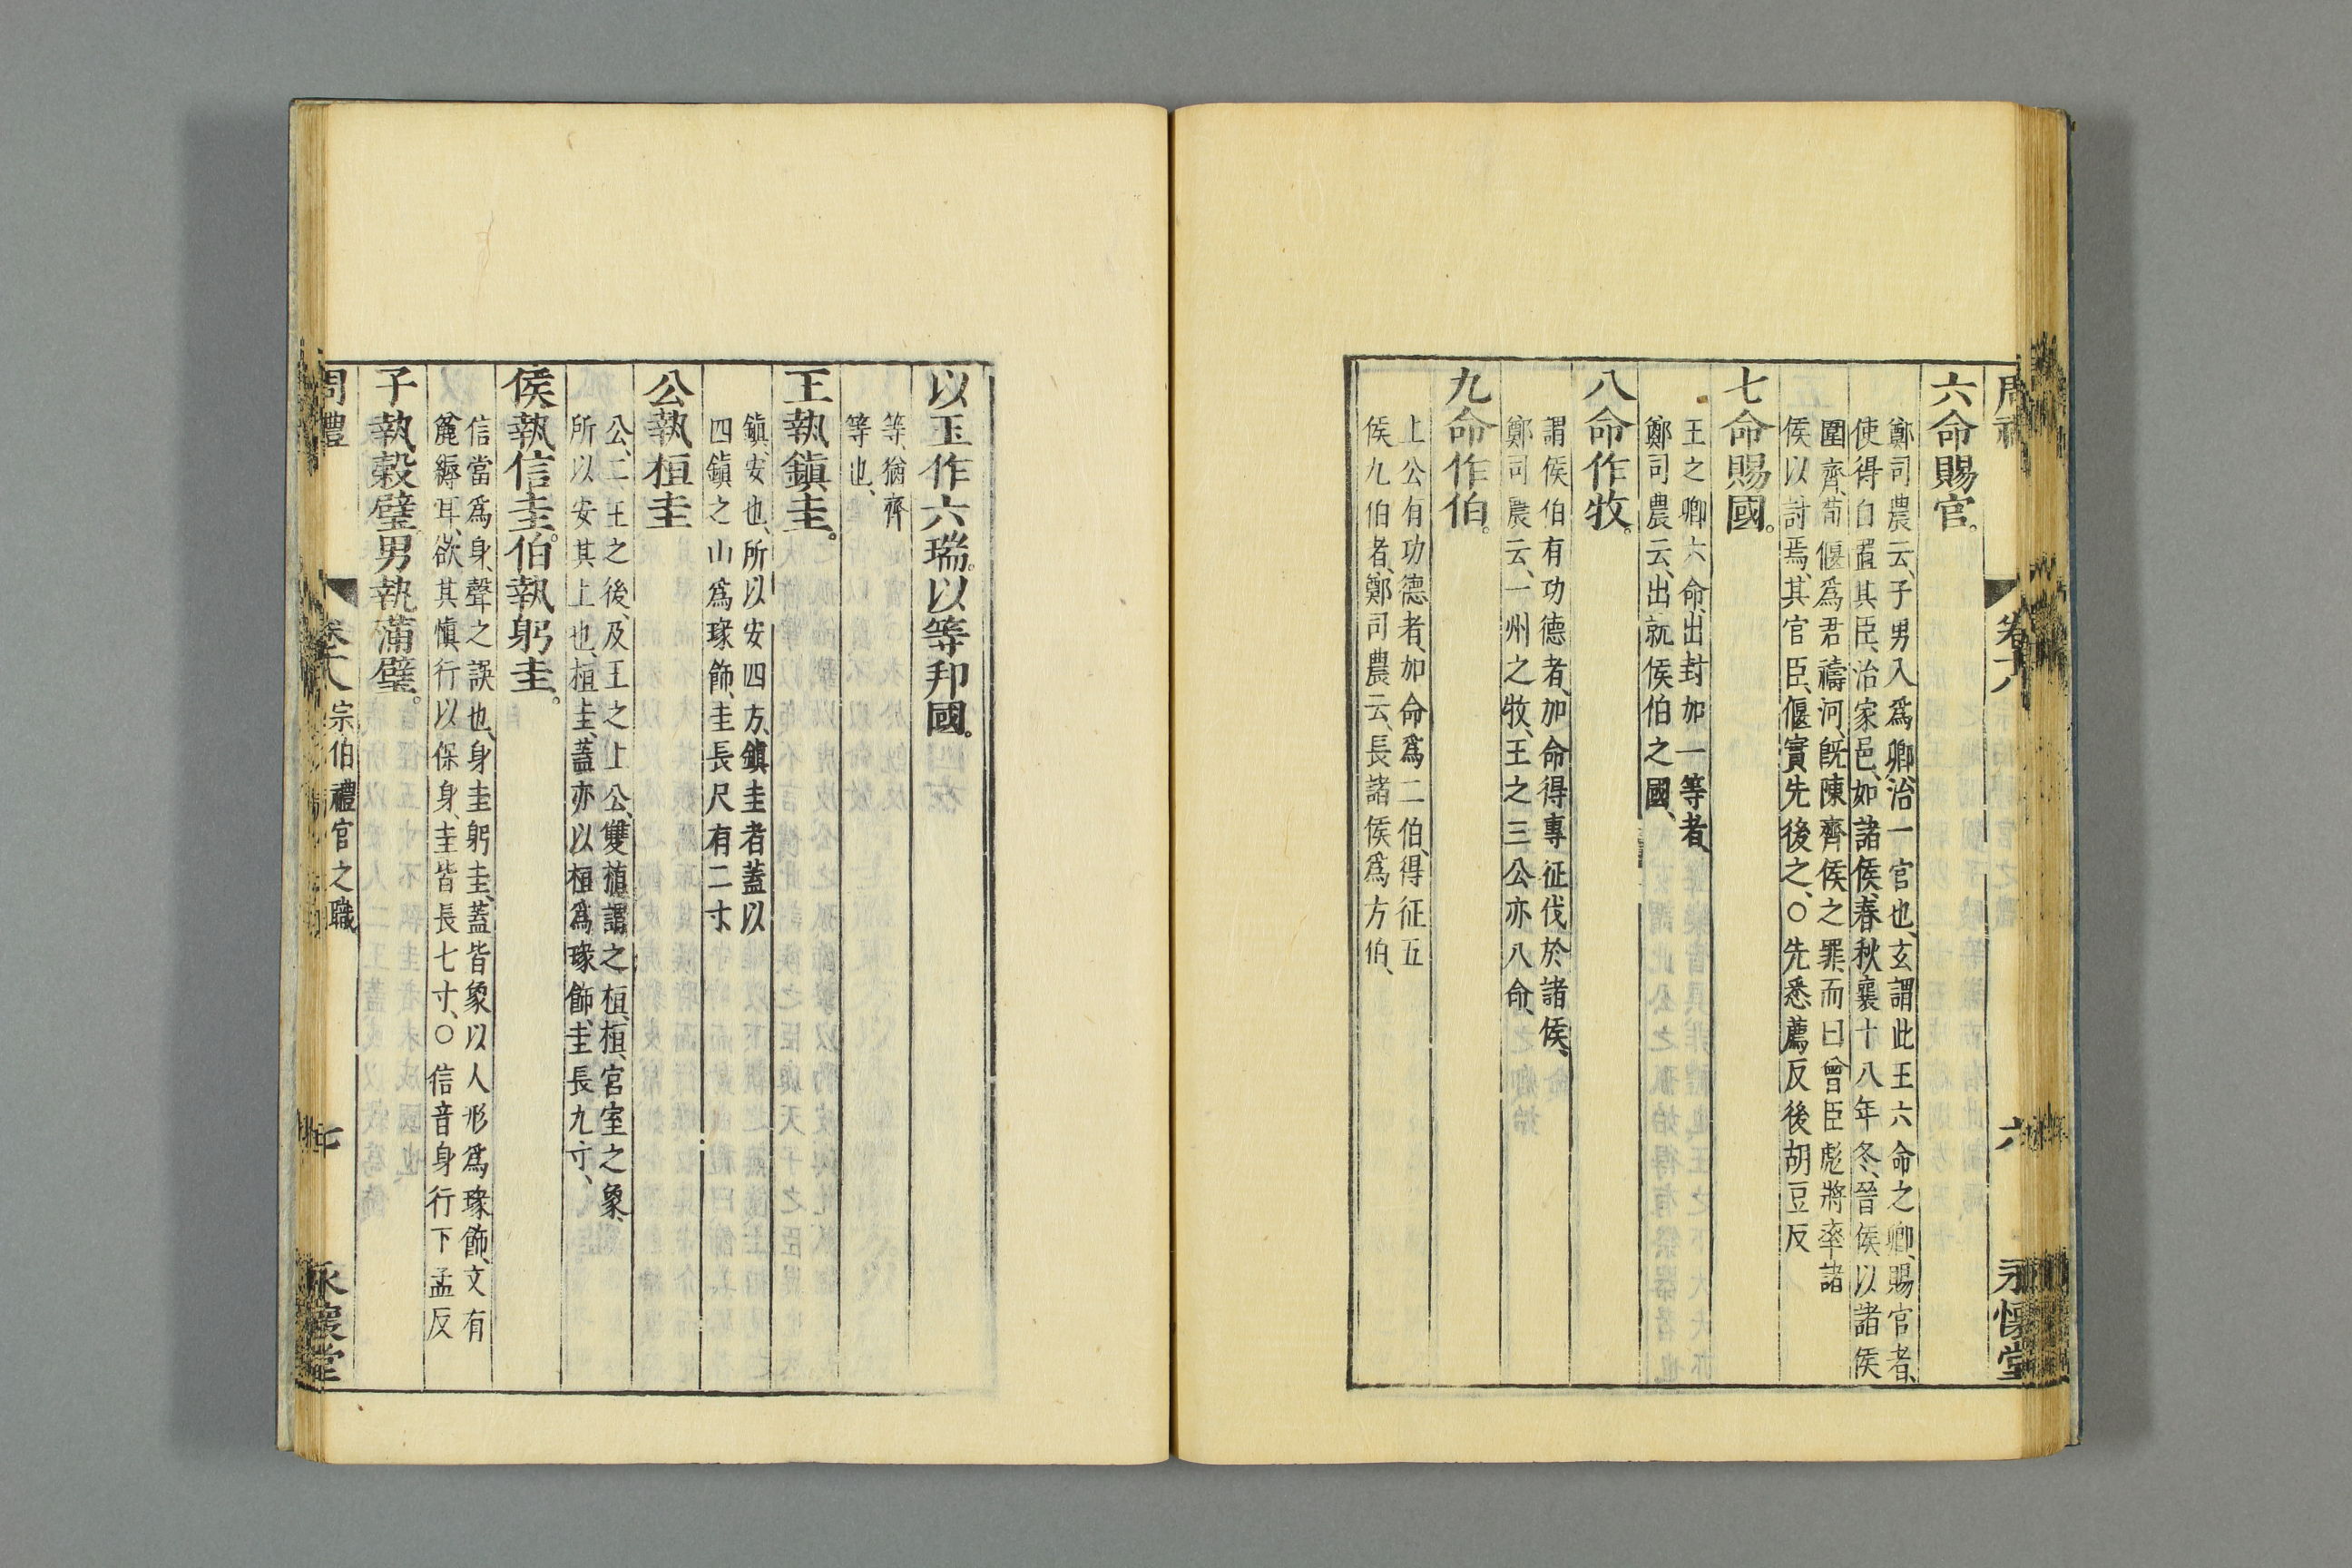 六命賜官。
鄭司農云、子男入爲卿治一官也、玄謂此王六命之卿、賜官者、
使得自置其臣、治家邑、如諸侯、春秋襄十八年冬、晉侯以諸侯
圍齊、荀偃爲君禱河、既陳齊侯之罪、而曰曾臣彪將率諸
侯以討焉、其官臣偃實先後之、○先悉薦反後胡豆反
七命賜國。
王之卿六命、出封加一等者、
鄭司農云、出就侯伯之國、
八命作牧。
謂侯伯有功德者、加命得專征伐於諸侯、
鄭司農云、一州之牧、王之三公亦八命、
九命作伯。
上公有功德者、加命爲二伯、得征五
侯九伯者、鄭司農云、長諸侯爲方伯、
六
永懷堂
以玉作六瑞。以等邦國。
等、猶齊
等也、
王執鎮圭。
鎮、安也、所以安四方、鎮圭者蓋以
四鎮之山爲瑑飾、圭長尺有二寸
公執桓圭
公、二王之後、及王之上公、雙植謂之桓、桓、宮室之象、
所以安其上也、桓圭、蓋亦以桓爲瑑飾、圭長九寸、
侯執信圭。伯執躬圭。
信當爲身、聲之誤也、身圭躬圭、蓋皆象以人形爲瑑飾、文有
麄縟耳、欲其愼行以保身、圭皆長七寸、○信音身行下孟反
子執穀璧。男執蒲璧。
周禮
宗伯禮官之職
七
永懷堂